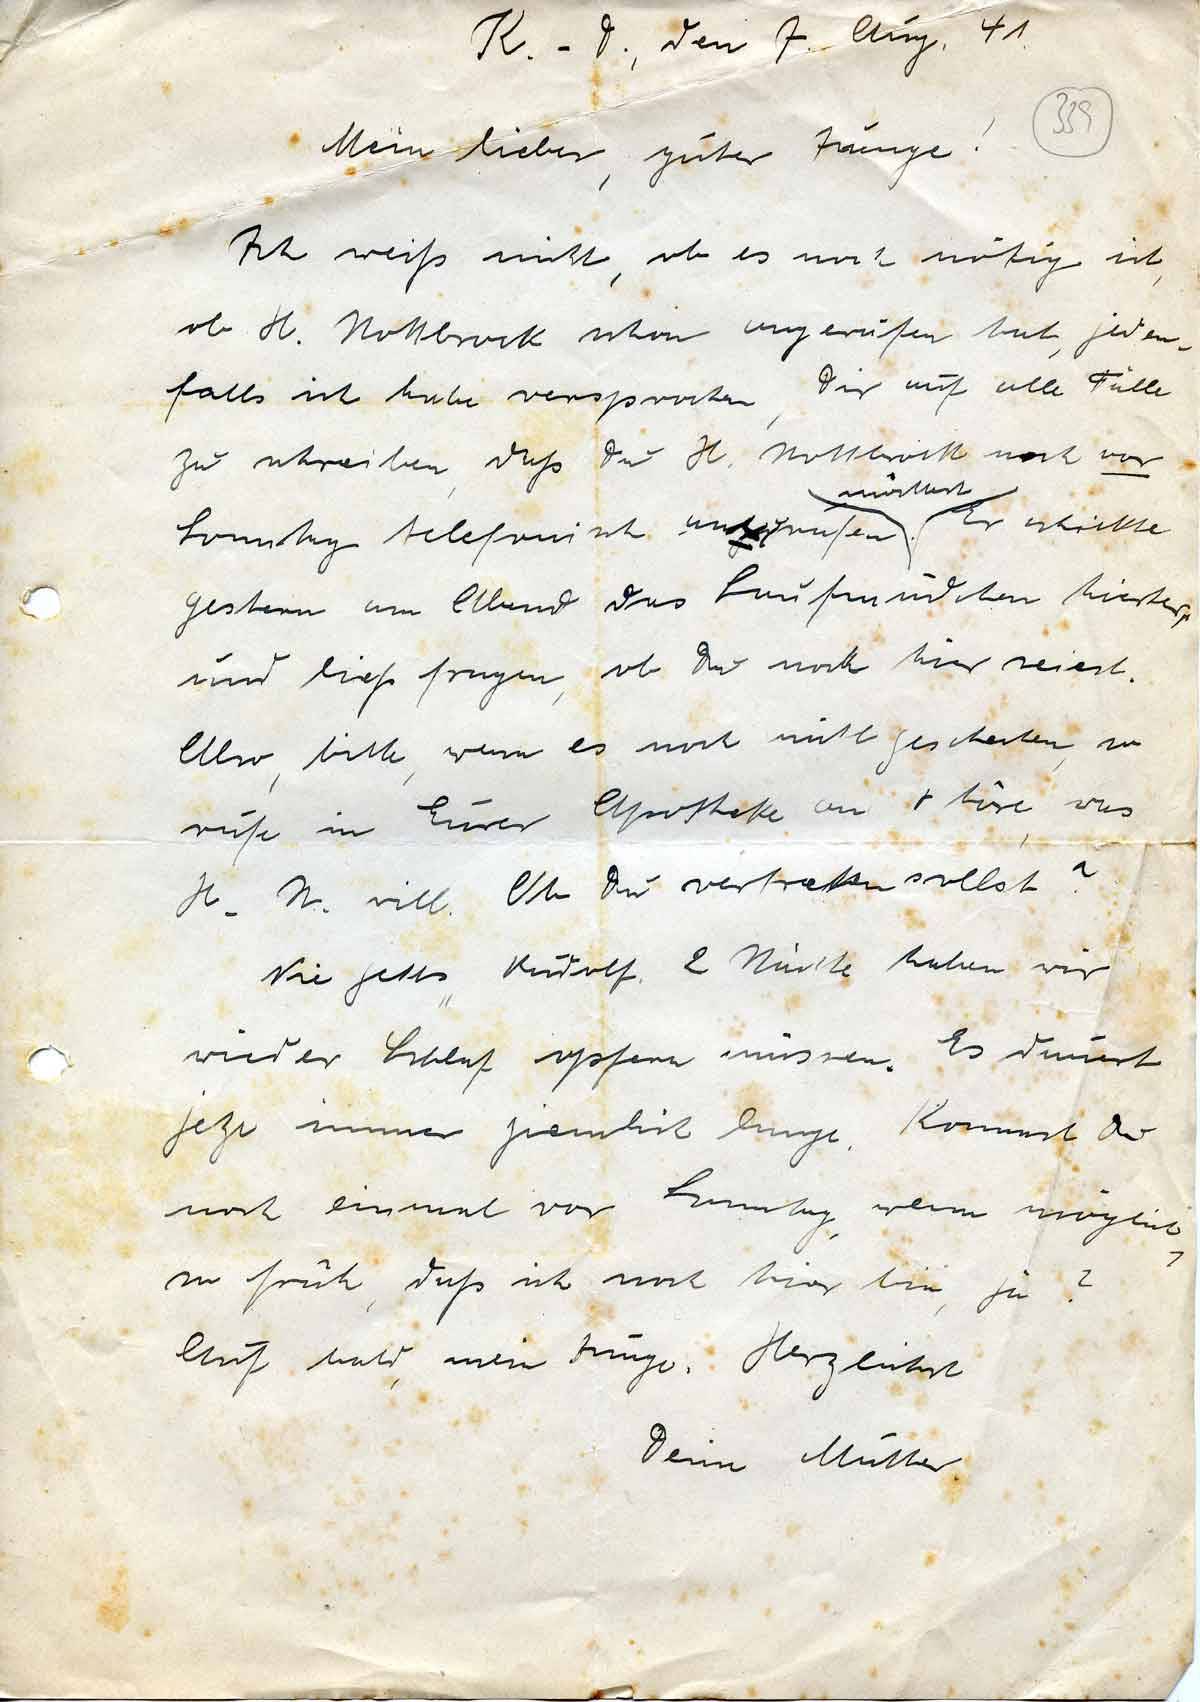 K.-D., den 7. Aug. 41.
339
Mein lieber, guter Junge!
Ich weiß nicht, ob es noch nötig ist,
ob H. Nottbrock schon angerufen hat, jeden-
falls ich habe versprochen, Dir auf alle Fälle
zu schreiben, daß Du H. Nottbrock noch vor
möchtest
Sonntag telefonisch anrufen. Er schickte
gestern am Abend das Laufmädchen hierher,
und ließ fragen, ob Du noch hier seiest.
Also, bitte, wenn es noch nicht geschehen, so
rufe in Eurer Apotheke an + höre, was
H. N. will. Ob Du vertreten sollst?
Wie geht's, Rudolf. 2 Nächte haben wir
wieder Schlaf opfern müssen. Es dauert
jetzt immer ziemlich lange. Kommst Du
noch einmal vor Sonntag, wenn möglich,
so früh, daß ich noch hier bin, ja?
Auf bald, mein Junge. Herzlichst
Deine Mutter